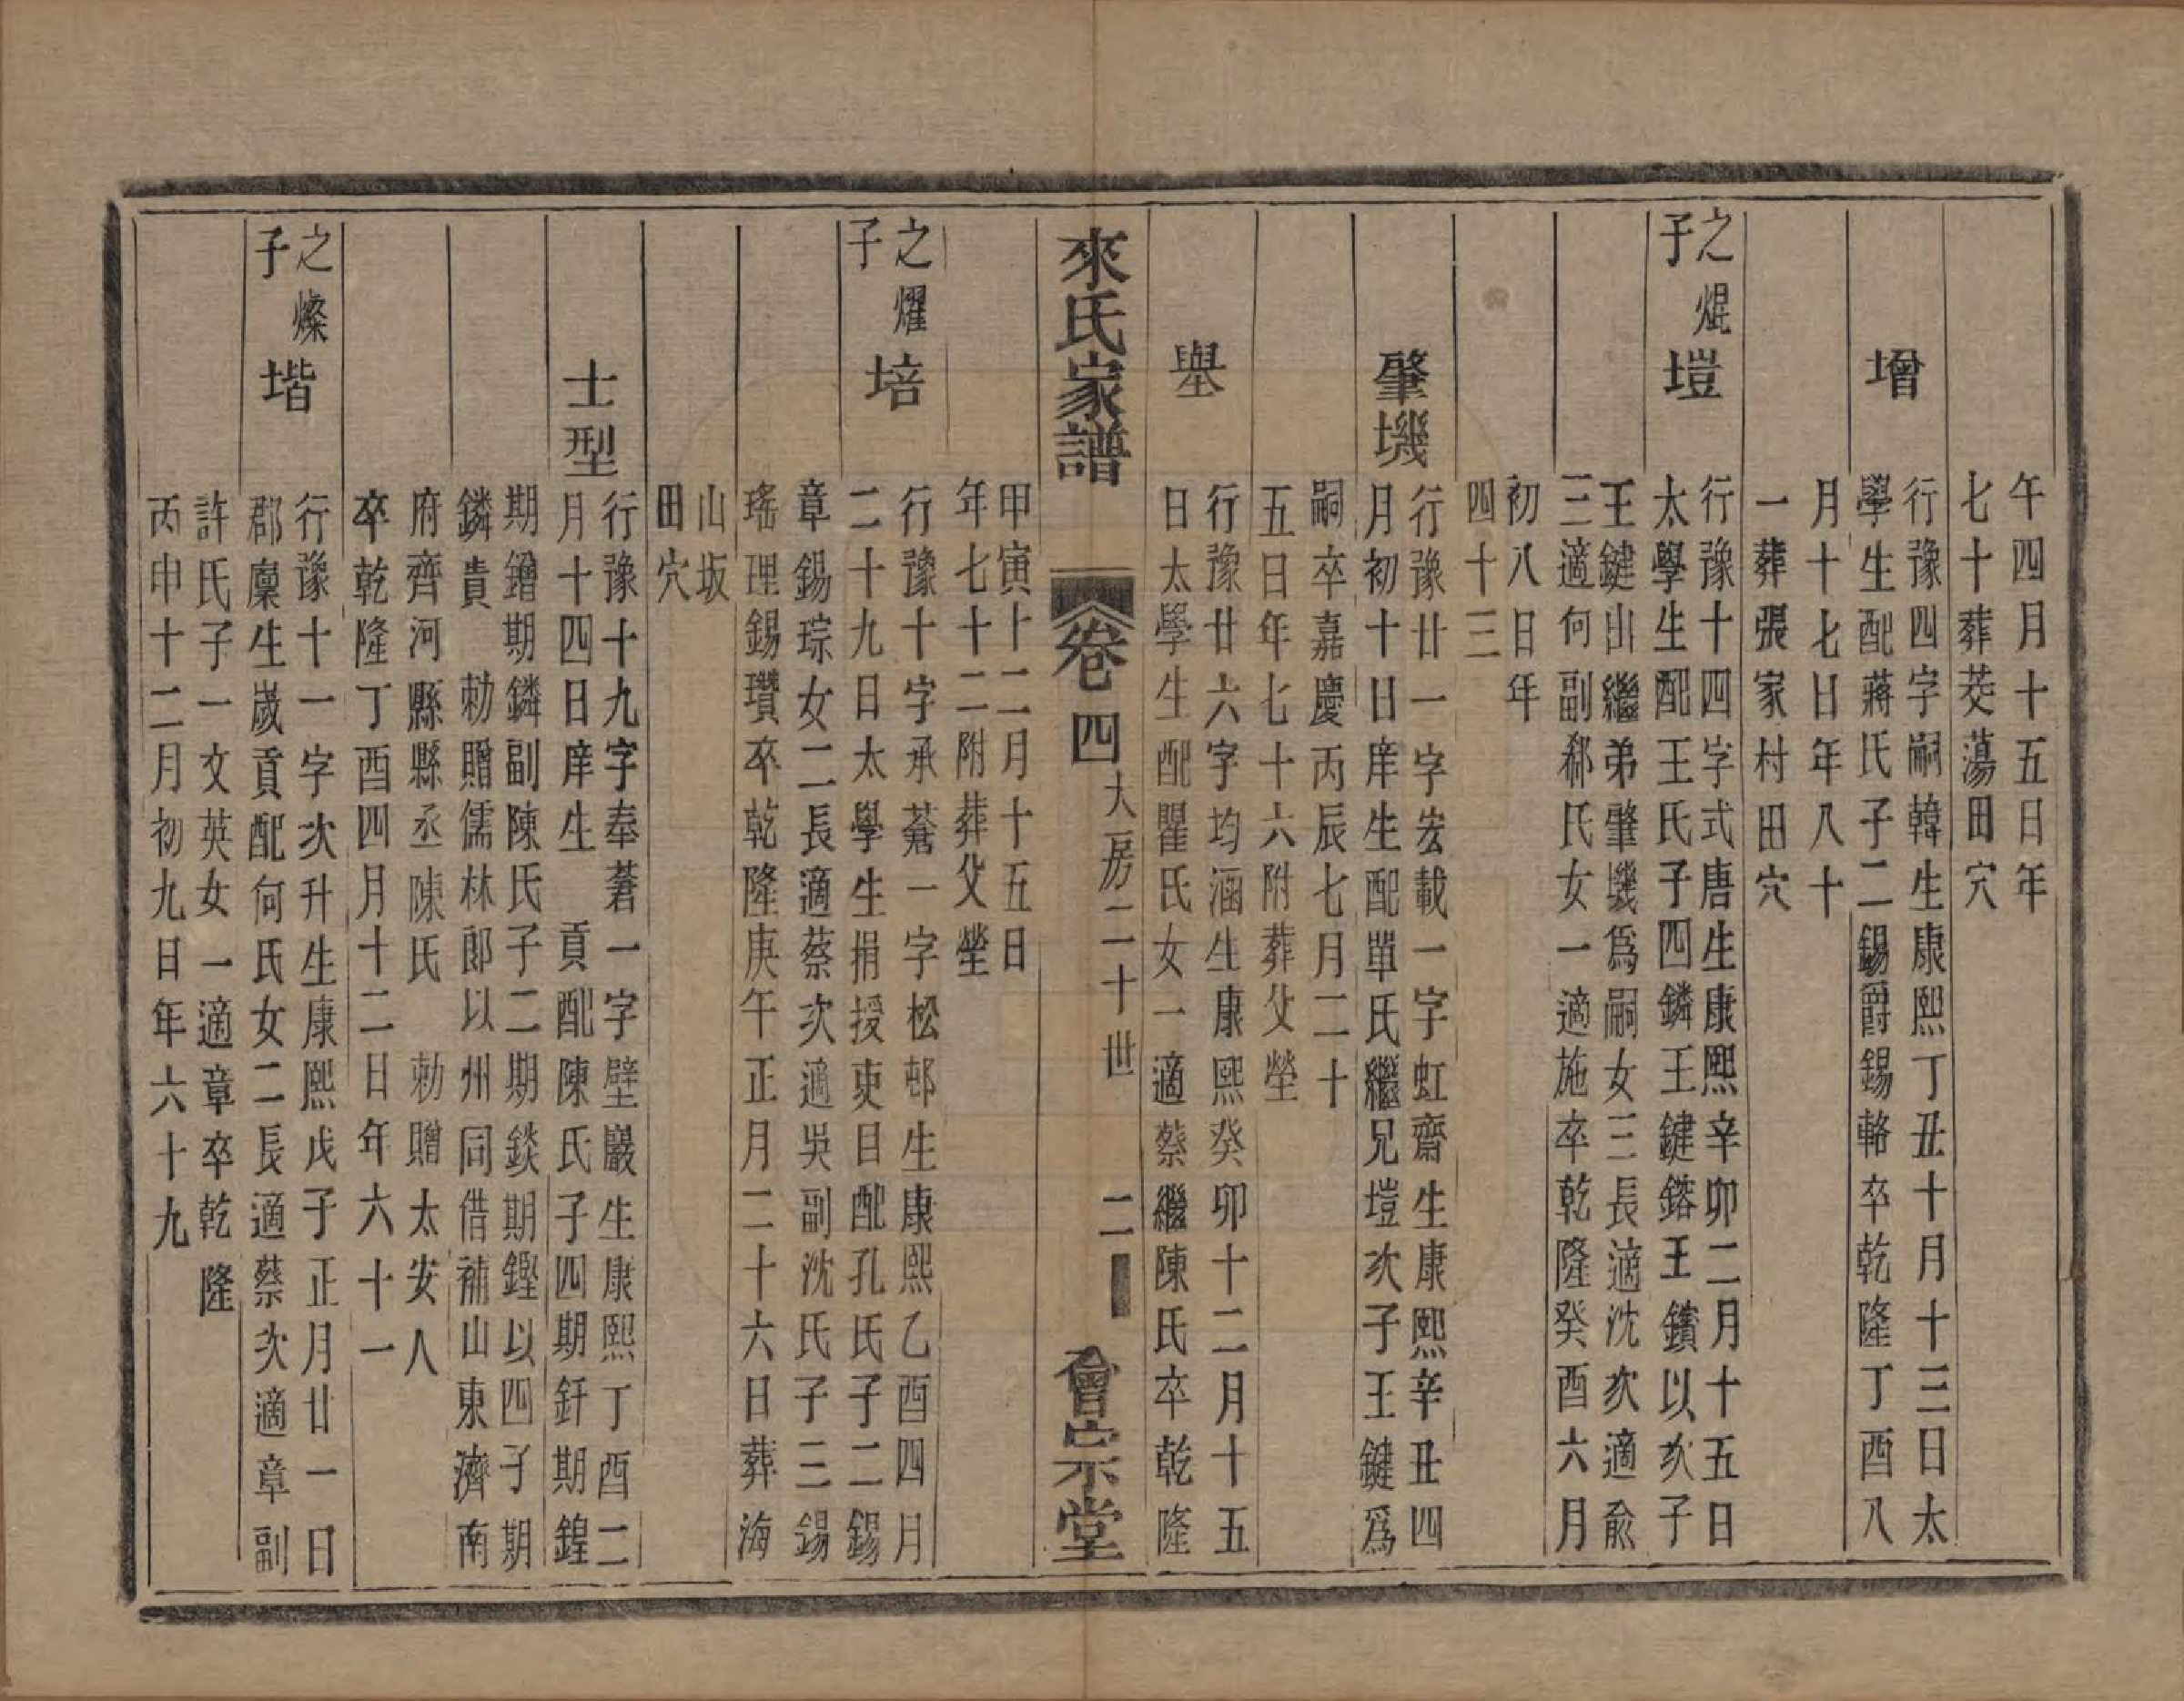 午四月十五日年
七十葬茭蕩田穴
增
行豫四字嗣韓生康熙丁丑十月十三日太
學生配蔣氏子二錫爵錫輅卒乾隆丁酉八
月十七日年八十
一葬張家村田穴
之焜
子
塏
行豫十四字式唐生康熙辛卯二月十五日
太學生配王氏子四鏻王鍵鎔王鑌以次子
王鍵出繼弟肇墢為嗣女三長適沈次適兪
三適何副郗氏女一適施卒乾隆癸酉六月
初八日年
四十三
肇墢
行豫廿一字宏載一字虹齋生康熙辛丑四
月初十日庠生配單氏繼兄塏次子王鍵爲
嗣卒嘉慶丙辰七月二十
五日年七十六附葬父塋
壆
行豫廿六字均涵生康熙癸卯十二月十五
日太學生配瞿氏女一適蔡繼陳氏卒乾隆
來氏家譜
卷四
大房二十世
二
會宗堂
甲寅十二月十五日
年七十二附葬父塋
之燿
子
培
行豫十字承蒼一字松邨生康熙乙酉四月
二十九日太學生捐授吏目配孔氏子二錫
章錫琮女二長適蔡次適吳副沈氏子三錫
瑤理錫瓚卒乾隆庚午正月二十六日葬海
山坂
田穴
士型
行豫十九字奉蒼一字壁巖生康熙丁酉二
月十四日庠生 貢配陳氏子四期釬期鍠
期鏳期鏻副陳氏子二期錟期鏗以四子期
鏻貴 勅贈儒林郎以州同借補山東濟南
府齊河縣縣丞陳氏 勅贈太安人
卒乾隆丁酉四月十二日年六十一
之燦
子
堦
行豫十一字次升生康熙戊子正月廿一日
郡廩生嵗貢配何氏女二長適蔡次適章副
許氏子一文英女一適章卒乾隆
丙申十二月初九日年六十九